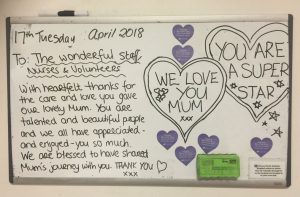 17th Tuesday April 2018
To: The wonderful staff,
Nurses & Volunteers
With heartfelt thanks for
the care and love you gave
our lovely Mum. You are
talented and beautiful people
and we all have appreciated -
and enjoyed - you so much.
We are blessed to have shared
Mum's journey with you. THANK YOU
xxx
WE LOVE
YOU
MUM
xxx
YOU ARE
A SUPER
STAR